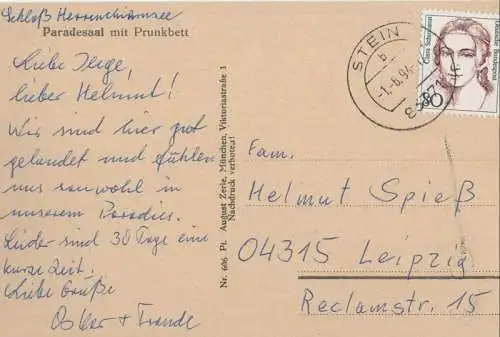 Schloß Herrenchiemsee
Paradesaal mit Prunkbett
Liebe Inge,
lieber Helmut!
Wir sind hier gut
gelandet und fühlen
uns sauwohl in
unserem Paradies.
Leider sind 30 Tage eine
kurze Zeit.
Liebe Grüße
Oskar +
Nr. 606. Pl. August Zerle, München, Viktoriastraße 1
Nachdruck verboten!
STEIN
b
-1.-6.94-
83371
Clara Schumann
Deutsche Bundespost
80
Fam.
Helmut Spieß
04315 Leipzig
Reclamstr. 15